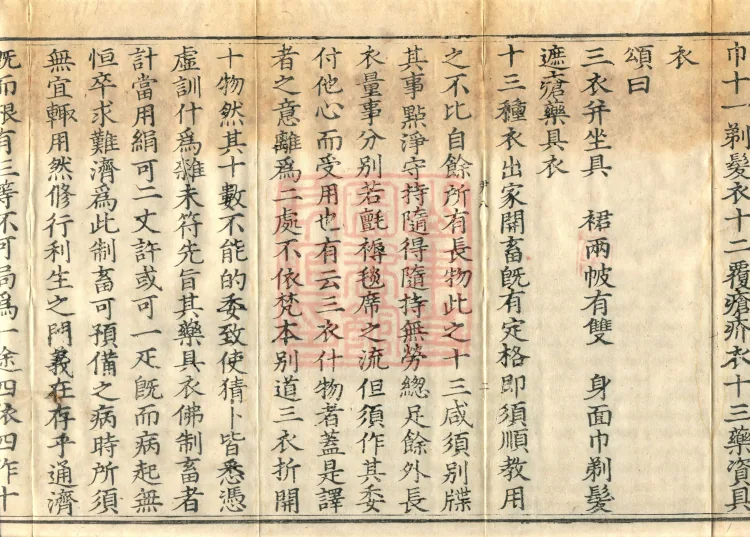 巾十一剃髮衣十二覆瘡疥衣十三藥資具
衣
頌曰
三衣幷坐具　裙兩帔有雙　身面巾剃髮
遮瘡藥具衣
十三種衣出家開畜旣有定格即須順教用
之不比自餘所有長物此之十三咸須別牒
其事點淨守持隨得隨持無勞緫足餘外長
衣量事分別若氈褥毯席之流但須作其委
付他心而受用也有云三衣什物者蓋是譯
者之意離爲二處不依梵本別道三衣折開
十物然其十數不能的委致使猜卜皆悉憑
虛訓什爲雜未符先旨其藥具衣佛制畜者
計當用絹可二丈許或可一疋旣而病起無
恒卒求難濟爲此制畜可預備之病時所須
無宜輙用然修行利生之門義在存乎通濟
旣而根有三等不可局爲一途四依四作十